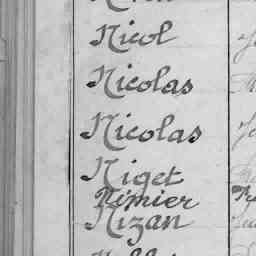 Nicol
Nicolas
Nicolas
Niget
Nimier
Nizan